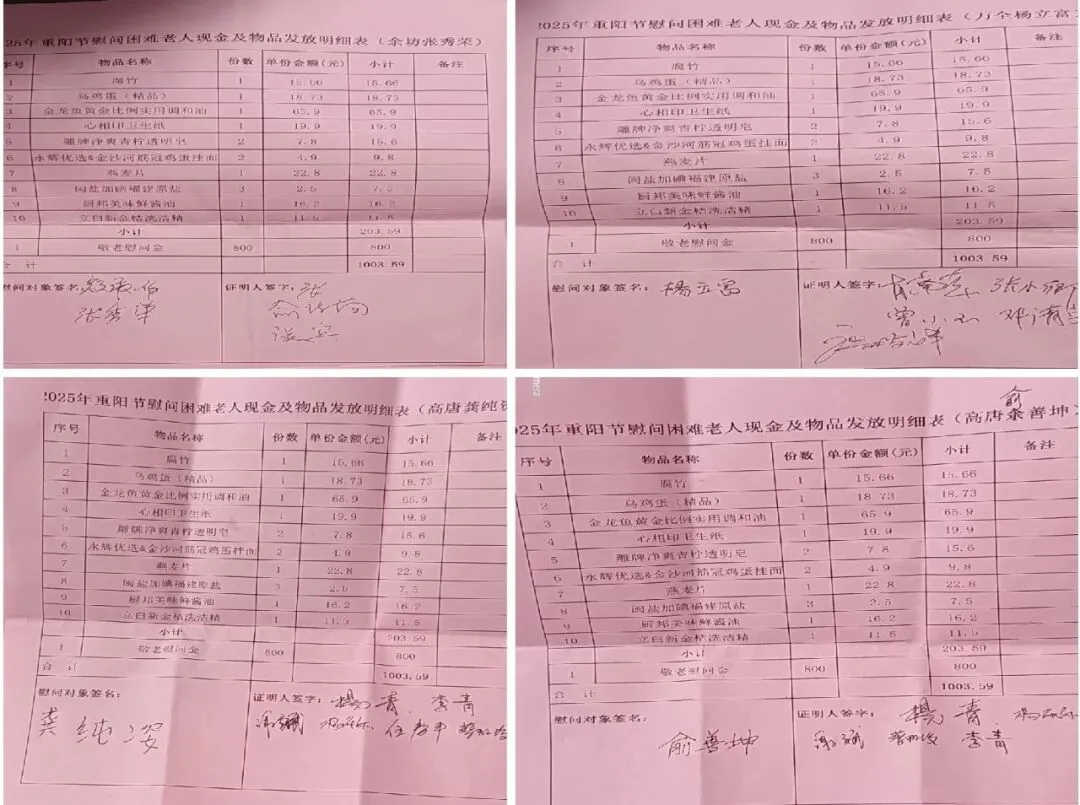 25年重阳节慰问困难老人现金及物品发放明细表（余坊张秀荣）
序号 物品名称 份数 单份金额(元) 小计 备注
1 腐竹 1 15.66 15.66
2 乌鸡蛋（精品） 1 18.73 18.73
3 金龙鱼黄金比例实用调和油 1 65.9 65.9
4 心相印卫生纸 1 19.9 19.9
5 雕牌净爽青柠透明皂 2 7.8 15.6
6 永辉优选&金沙河筋冠鸡蛋挂面 2 4.9 9.8
7 燕麦片 1 22.8 22.8
8 闽盐加碘福建原盐 3 2.5 7.5
9 厨邦美味鲜酱油 1 16.2 16.2
10 立白新金桔洗洁精 1 11.5 11.5
小计 203.59
1 敬老慰问金 800 800
合 计 1003.59
慰问对象签名：
张秀荣
证明人签字：张
2025年重阳节慰问困难老人现金及物品发放明细表（万全杨立富
序号 物品名称 份数 单份金额(元) 小计 备注
1 腐竹 1 15.66 15.66
2 乌鸡蛋（精品） 1 18.73 18.73
3 金龙鱼黄金比例实用调和油 1 65.9 65.9
4 心相印卫生纸 1 19.9 19.9
5 雕牌净爽青柠透明皂 2 7.8 15.6
6 永辉优选&金沙河筋冠鸡蛋挂面 2 4.9 9.8
7 燕麦片 1 22.8 22.8
8 闽盐加碘福建原盐 3 2.5 7.5
9 厨邦美味鲜酱油 1 16.2 16.2
10 立白新金桔洗洁精 1 11.5 11.5
小计 203.59
1 敬老慰问金 800 800
合 计 1003.59
慰问对象签名：杨立富
证明人签字：
曾小
2025年重阳节慰问困难老人现金及物品发放明细表（高唐龚纯
序号 物品名称 份数 单份金额(元) 小计 备注
1 腐竹 1 15.66 15.66
2 乌鸡蛋（精品） 1 18.73 18.73
3 金龙鱼黄金比例实用调和油 1 65.9 65.9
4 心相印卫生纸 1 19.9 19.9
5 雕牌净爽青柠透明皂 2 7.8 15.6
6 永辉优选&金沙河筋冠鸡蛋挂面 2 4.9 9.8
7 燕麦片 1 22.8 22.8
8 闽盐加碘福建原盐 3 2.5 7.5
9 厨邦美味鲜酱油 1 16.2 16.2
10 立白新金桔洗洁精 1 11.5 11.5
小计 203.59
1 敬老慰问金 800 800
合 计 1003.59
慰问对象签名：
龚纯
证明人签字：杨青 李青
俞
2025年重阳节慰问困难老人现金及物品发放明细表（高唐余善坤）
序号 物品名称 份数 单份金额(元) 小计 备注
1 腐竹 1 15.66 15.66
2 乌鸡蛋（精品） 1 18.73 18.73
3 金龙鱼黄金比例实用调和油 1 65.9 65.9
4 心相印卫生纸 1 19.9 19.9
5 雕牌净爽青柠透明皂 2 7.8 15.6
6 永辉优选&金沙河筋冠鸡蛋挂面 2 4.9 9.8
7 燕麦片 1 22.8 22.8
8 闽盐加碘福建原盐 3 2.5 7.5
9 厨邦美味鲜酱油 1 16.2 16.2
10 立白新金桔洗洁精 1 11.5 11.5
小计 203.59
1 敬老慰问金 800 800
合 计 1003.59
慰问对象签名：
俞善坤
证明人签字：杨青
李青